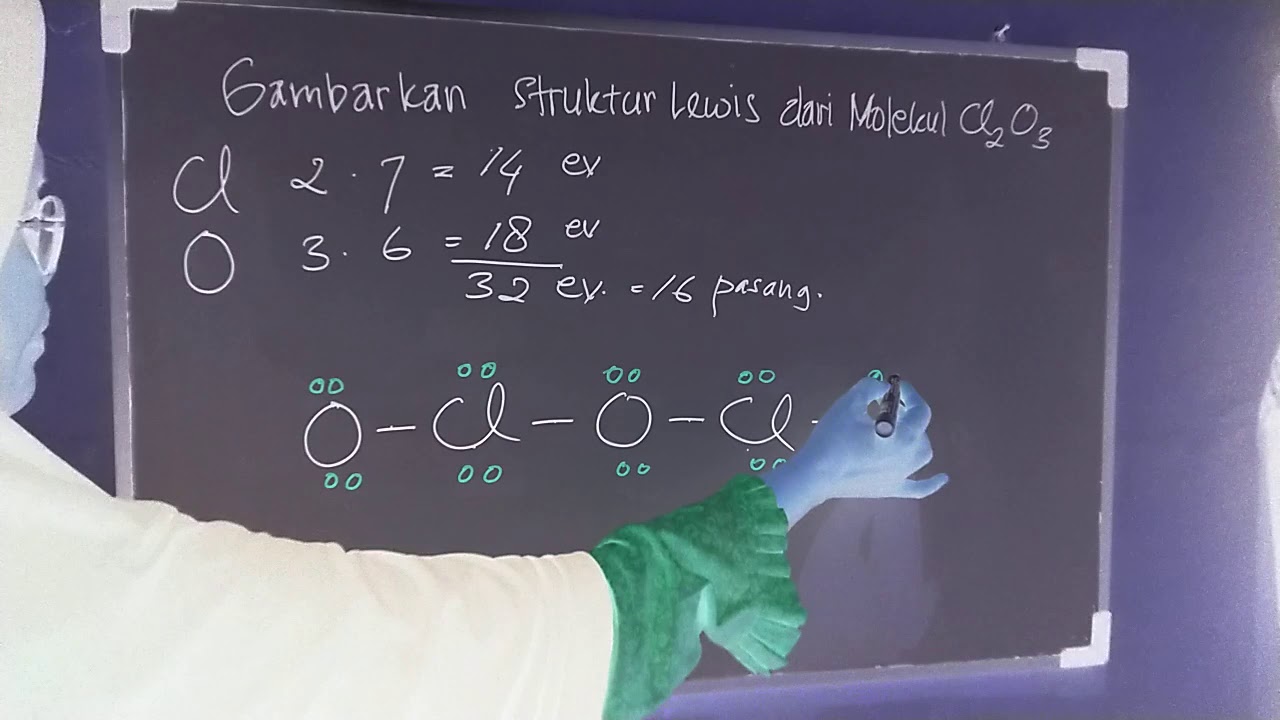 Gambarkan Struktur Lewis dari Molekul Cl₂O₃
Cl 2 . 7 = 14 ev
O 3 . 6 = 18 ev
32 ev. = 16 pasang.
O – Cl – O – Cl –